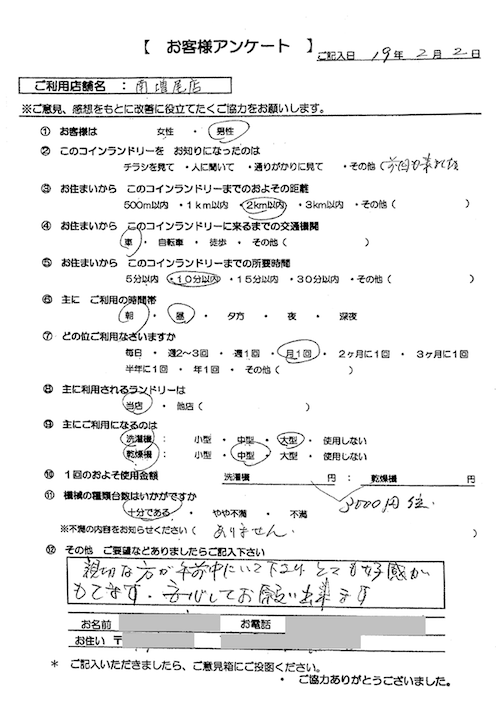 【 お客様アンケート 】
ご記入日 19年 2月 2日
ご利用店舗名 : 南増尾店
※ご意見、感想をもとに改善に役立てたくご協力をお願いします。
① お客様は 女性 ・ 男性
② このコインランドリーを お知りになったのは
チラシを見て ・人に聞いて ・通りがかりに見て ・その他（
③ お住まいから このコインランドリーまでのおよその距離
500m以内 ・1km以内 ・2km以内 ・3km以内 ・その他（ ）
④ お住まいから このコインランドリーに来るまでの交通機関
車 ・ 自転車 ・ 徒歩 ・ その他（ ）
⑤ お住まいから このコインランドリーまでの所要時間
5分以内 ・10分以内 ・15分以内 ・30分以内 ・その他（ ）
⑥ 主に ご利用の時間帯
朝 ・ 昼 ・ 夕方 ・ 夜 ・ 深夜
⑦ どの位ご利用なさいますか
毎日 ・ 週2〜3回 ・ 週1回 ・ 月1回 ・ 2ヶ月に1回 ・ 3ヶ月に1回
半年に1回 ・ 年1回 ・ その他（ ）
⑧ 主に利用されるランドリーは
当店 ・ 他店（ ）
⑨ 主にご利用になるのは
洗濯機 : 小型 ・ 中型 ・ 大型 ・ 使用しない
乾燥機 : 小型 ・ 中型 ・ 大型 ・ 使用しない
⑩ 1回のおよそ使用金額 洗濯機 円 : 乾燥機 円
3000円位.
⑪ 機械の種類台数はいかがですか
十分である ・ やや不満 ・ 不満
※不満の内容をお知らせください（ ありません. ）
⑫ その他 ご要望などありましたらご記入下さい
親切な方が午前中にいて下さり とても好感が
もてます. 安心してお願い出来ます
お名前 お電話
お住い 〒
＊ ご記入いただきましたら、ご意見箱にご投函ください。
・ ご協力ありがとうございました。